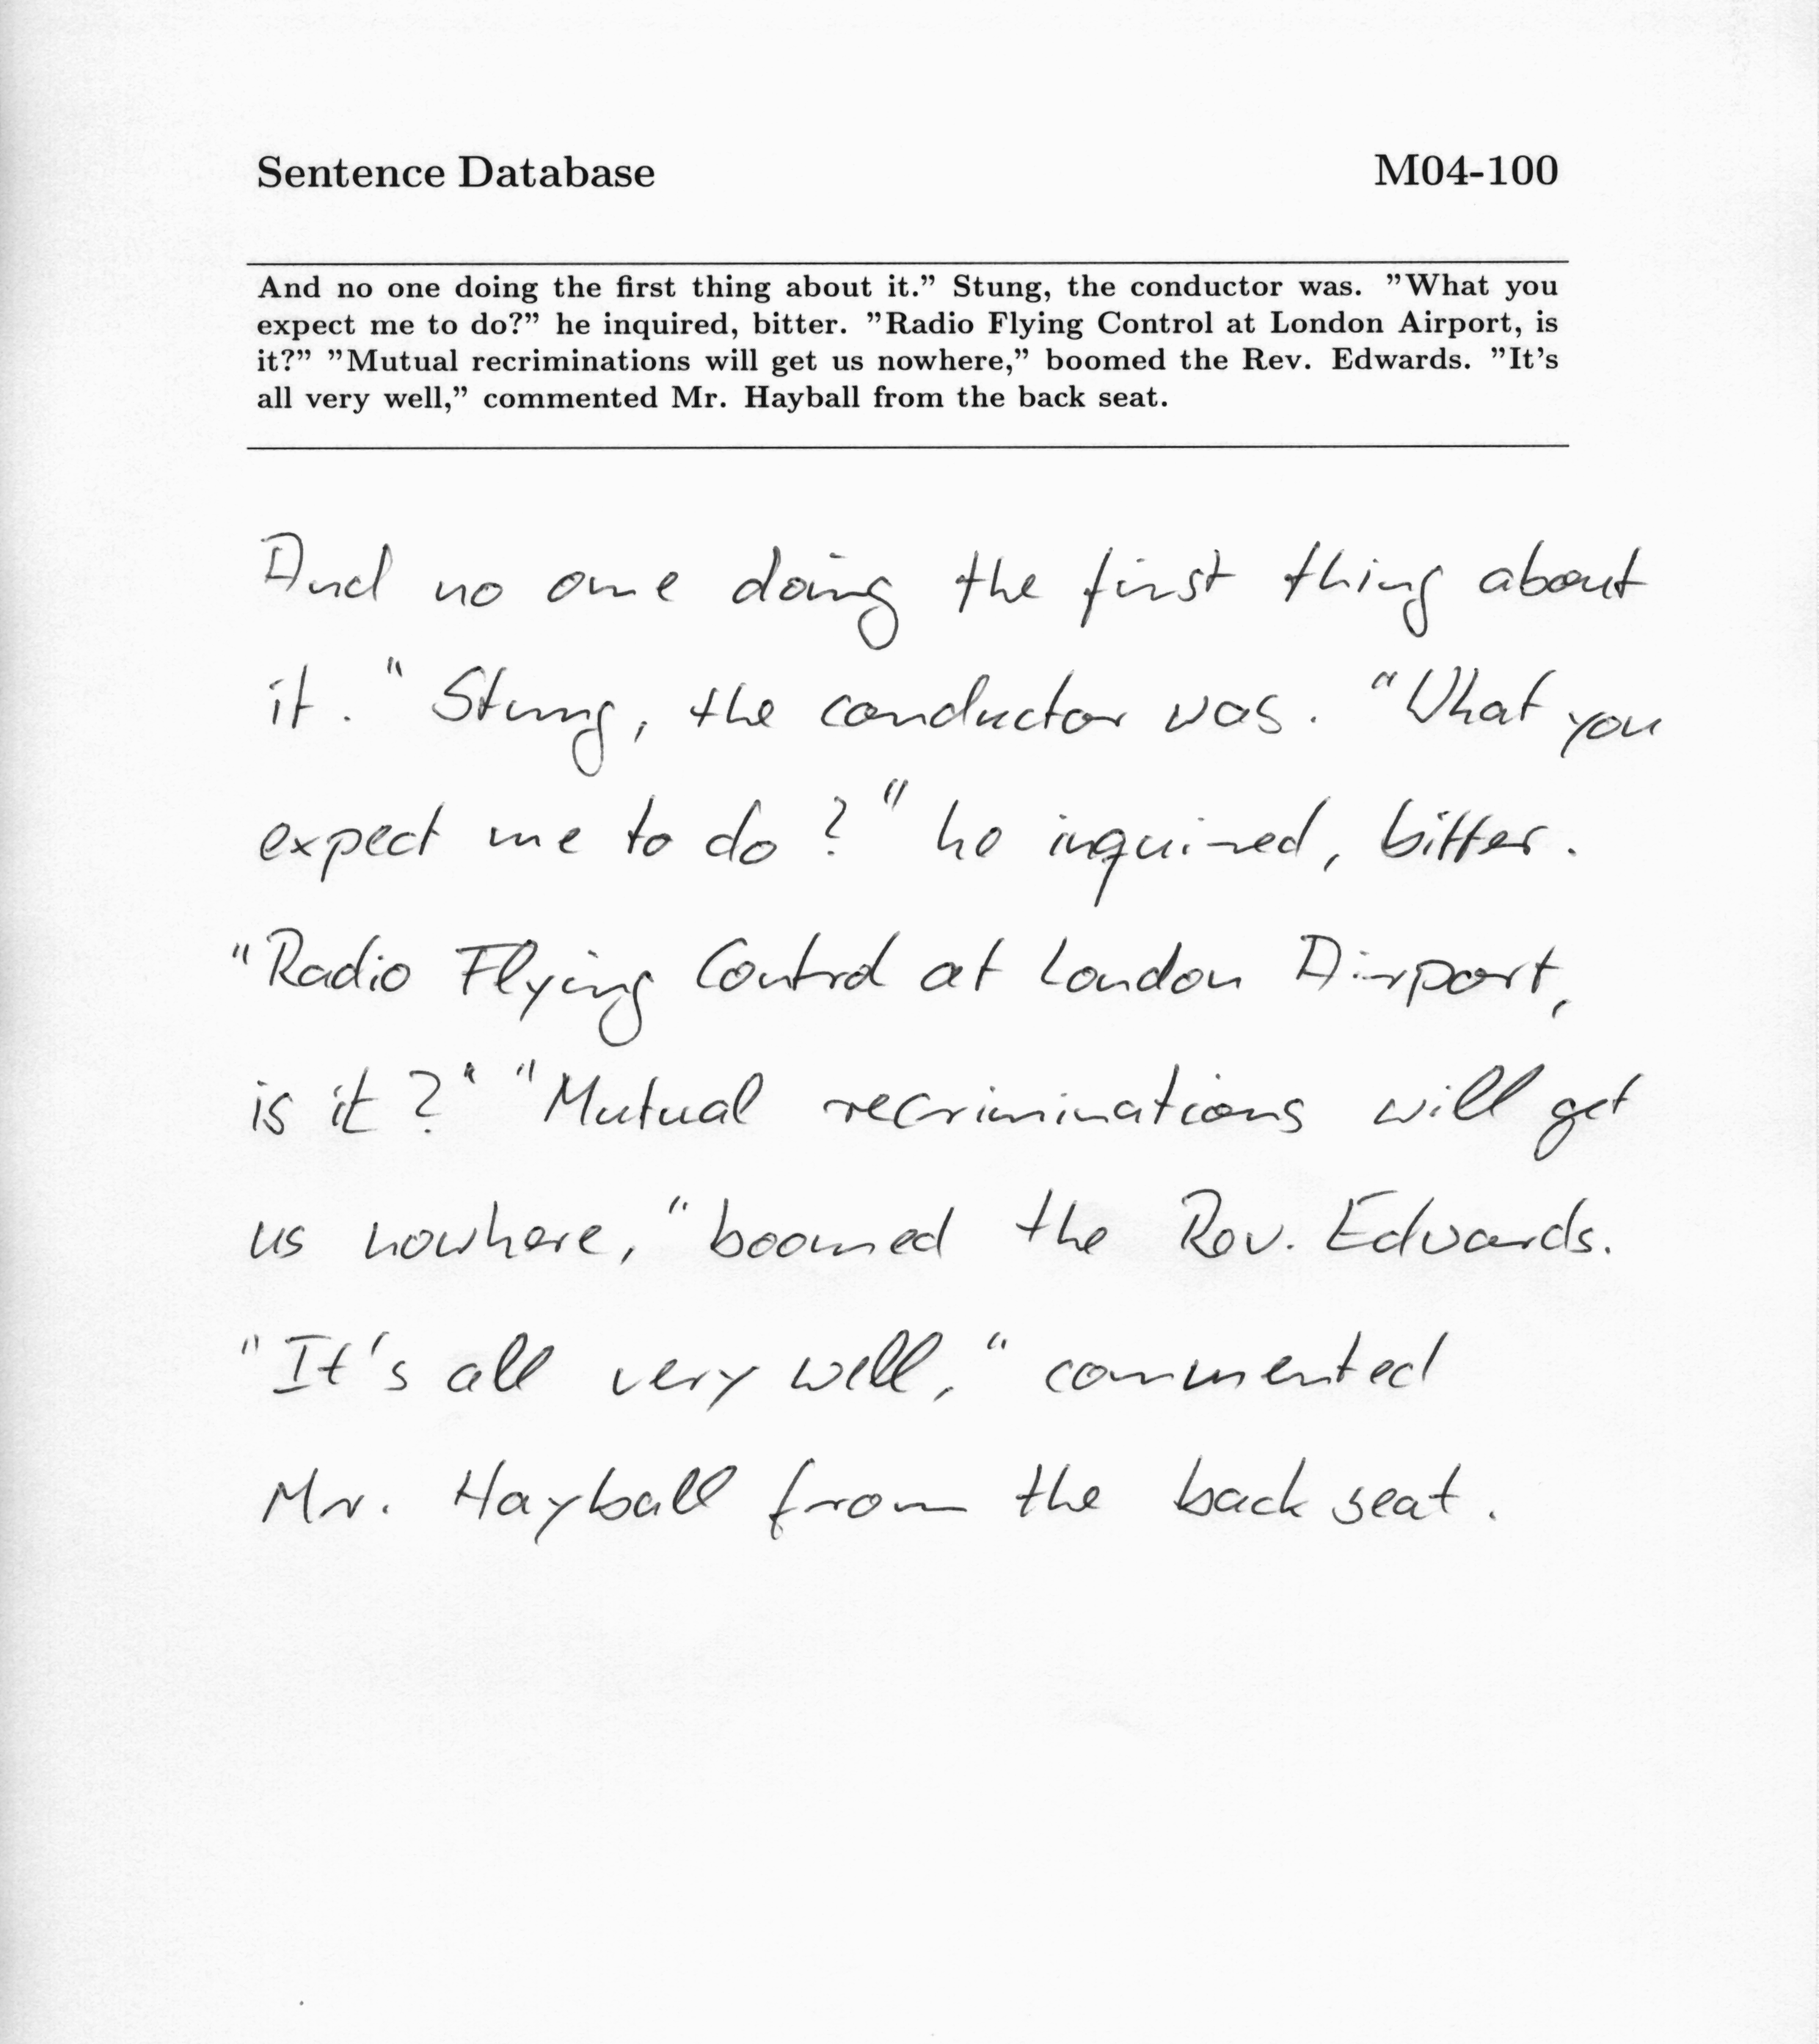 Sentence Database M04-100
And no one doing the first thing about it.” Stung, the conductor was. ”What you
expect me to do?” he inquired, bitter. ”Radio Flying Control at London Airport, is
it?” ”Mutual recriminations will get us nowhere,” boomed the Rev. Edwards. ”It’s
all very well,” commented Mr. Hayball from the back seat.
And no one doing the first thing about
it." Stung, the conductor was. "What you
expect me to do?" he inquired, bitter.
"Radio Flying Control at London Airport,
is it?" "Mutual recriminations will get
us nowhere," boomed the Rev. Edwards.
"It's all very well," commented
Mr. Hayball from the back seat.